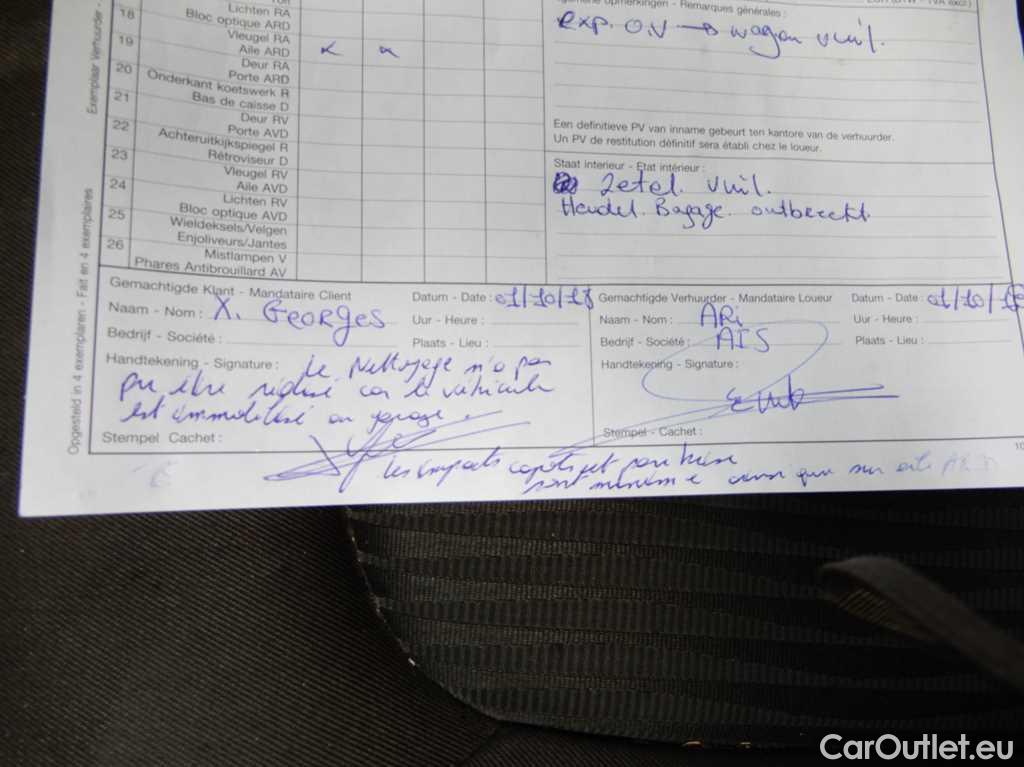 Exemplaar Verhuurder -
Opgesteld in 4 exemplaren - Fait en 4 exemplaires
18 Lichten RA
Bloc optique ARD
19 Vleugel RA
Aile ARD
20 Deur RA
Porte ARD
21 Onderkant koetswerk R
Bas de caisse D
22 Deur RV
Porte AVD
23 Achteruitkijkspiegel R
Rétroviseur D
24 Vleugel RV
Aile AVD
25 Lichten RV
Bloc optique AVD
26 Wieldeksels/Velgen
Enjoliveurs/Jantes
Mistlampen V
Phares Antibrouillard AV
opmerkingen - Remarques générales :
exp. O.V → wagon vuil.
Een definitieve PV van inname gebeurt ten kantore van de verhuurder.
Un PV de restitution définitif sera établi chez le loueur.
Staat interieur - Etat intérieur :
Zetel. vuil.
Bagage.
Gemachtigde Klant - Mandataire Client
Datum - Date : 01/10/18
Naam - Nom : X. Georges
Uur - Heure :
Bedrijf - Société :
Plaats - Lieu :
Handtekening - Signature : Le Nettoyage n'a pas
pu être réalisé car le véhicule
est immobilisé au garage.
Stempel Cachet :
Gemachtigde Verhuurder - Mandataire Loueur
Datum - Date : 01/10/18
Naam - Nom : ARi
Uur - Heure :
Bedrijf - Société : AIS
Plaats - Lieu :
Handtekening - Signature :
Stempel - Cachet :
Les impacts capot et pare brise
sont minime ainsi que sur aile ARD
CarOutlet.eu